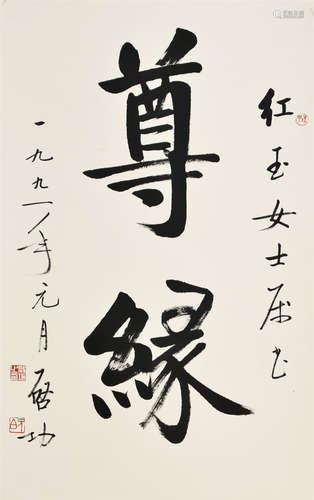 红玉女士属书
尊缘
一九九一年元月
启功